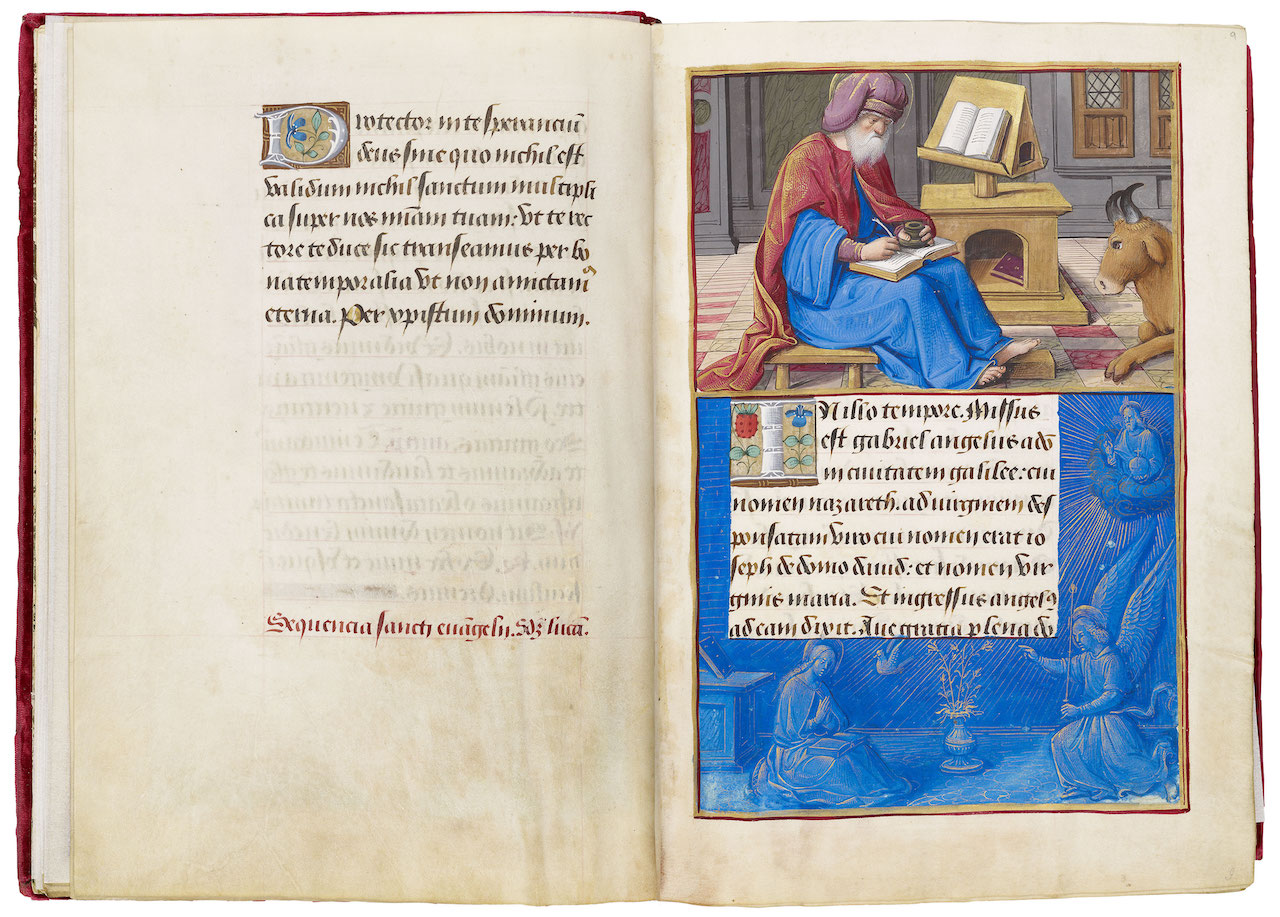 Protector in te speranciũ
deus sine quo nichil est
validum nichil sanctum multipli
ca super nos miãm tuam: vt te rec
tore te duce sic transeamus per bo
na temporalia vt non amictam⁹
eterna. Per xpistum dominum.
Sequencia sancti euãgelii. Scdz lucã.
9
IN illo tempore. Missus
est gabriel angelus a dõ
in ciuitatem galilee: cui
nomen nazareth. ad virginem des
ponsatam viro cui nomen erat io
seph de domo dauid: et nomen vir
ginis maria. Et ingressus angel⁹
ad eam dixit. Aue gratia plena dõ